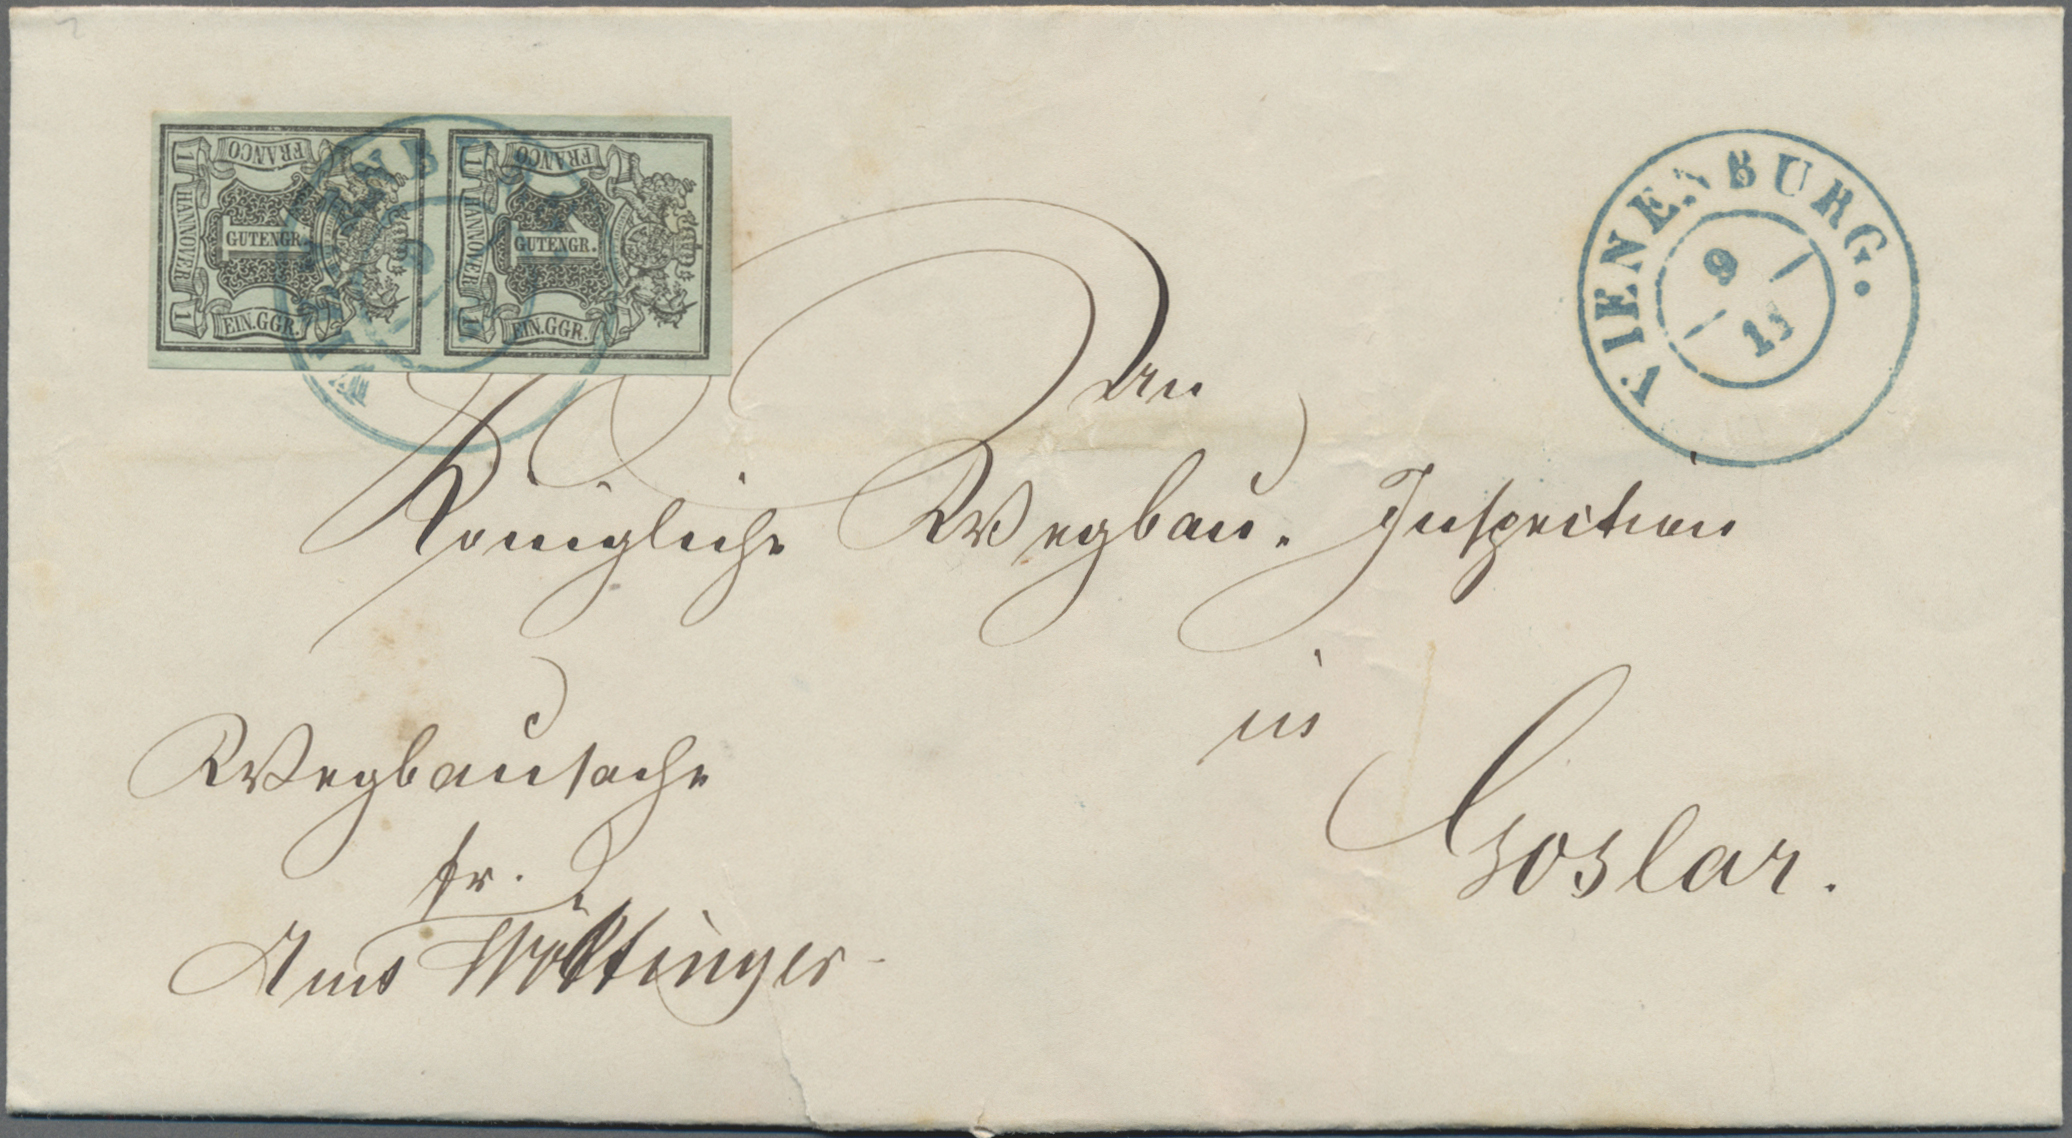 FRANCO
1 HANNOVER 1
1
GUTENGR.
EIN.GGR.
FRANCO
1 HANNOVER 1
1
GUTENGR.
EIN.GGR.
VIENENBURG.
9
11
Königliche Wegbau-Inspection
in
Goslar.
Wegbausache
fr.
Amt Wöltinger